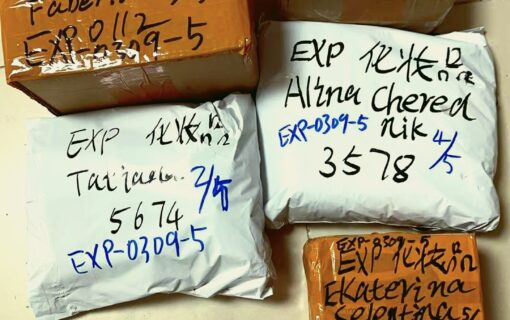 EXP 0112
EXP-0309-5
EXP 化妆品
Alina Chered
EXP-0309-5 nik 4/5
3578
EXP 化妆品
Tatiana 2/5
5674
EXP-0309-5
EXP-0309-5
EXP 化妆品
Ekaterina